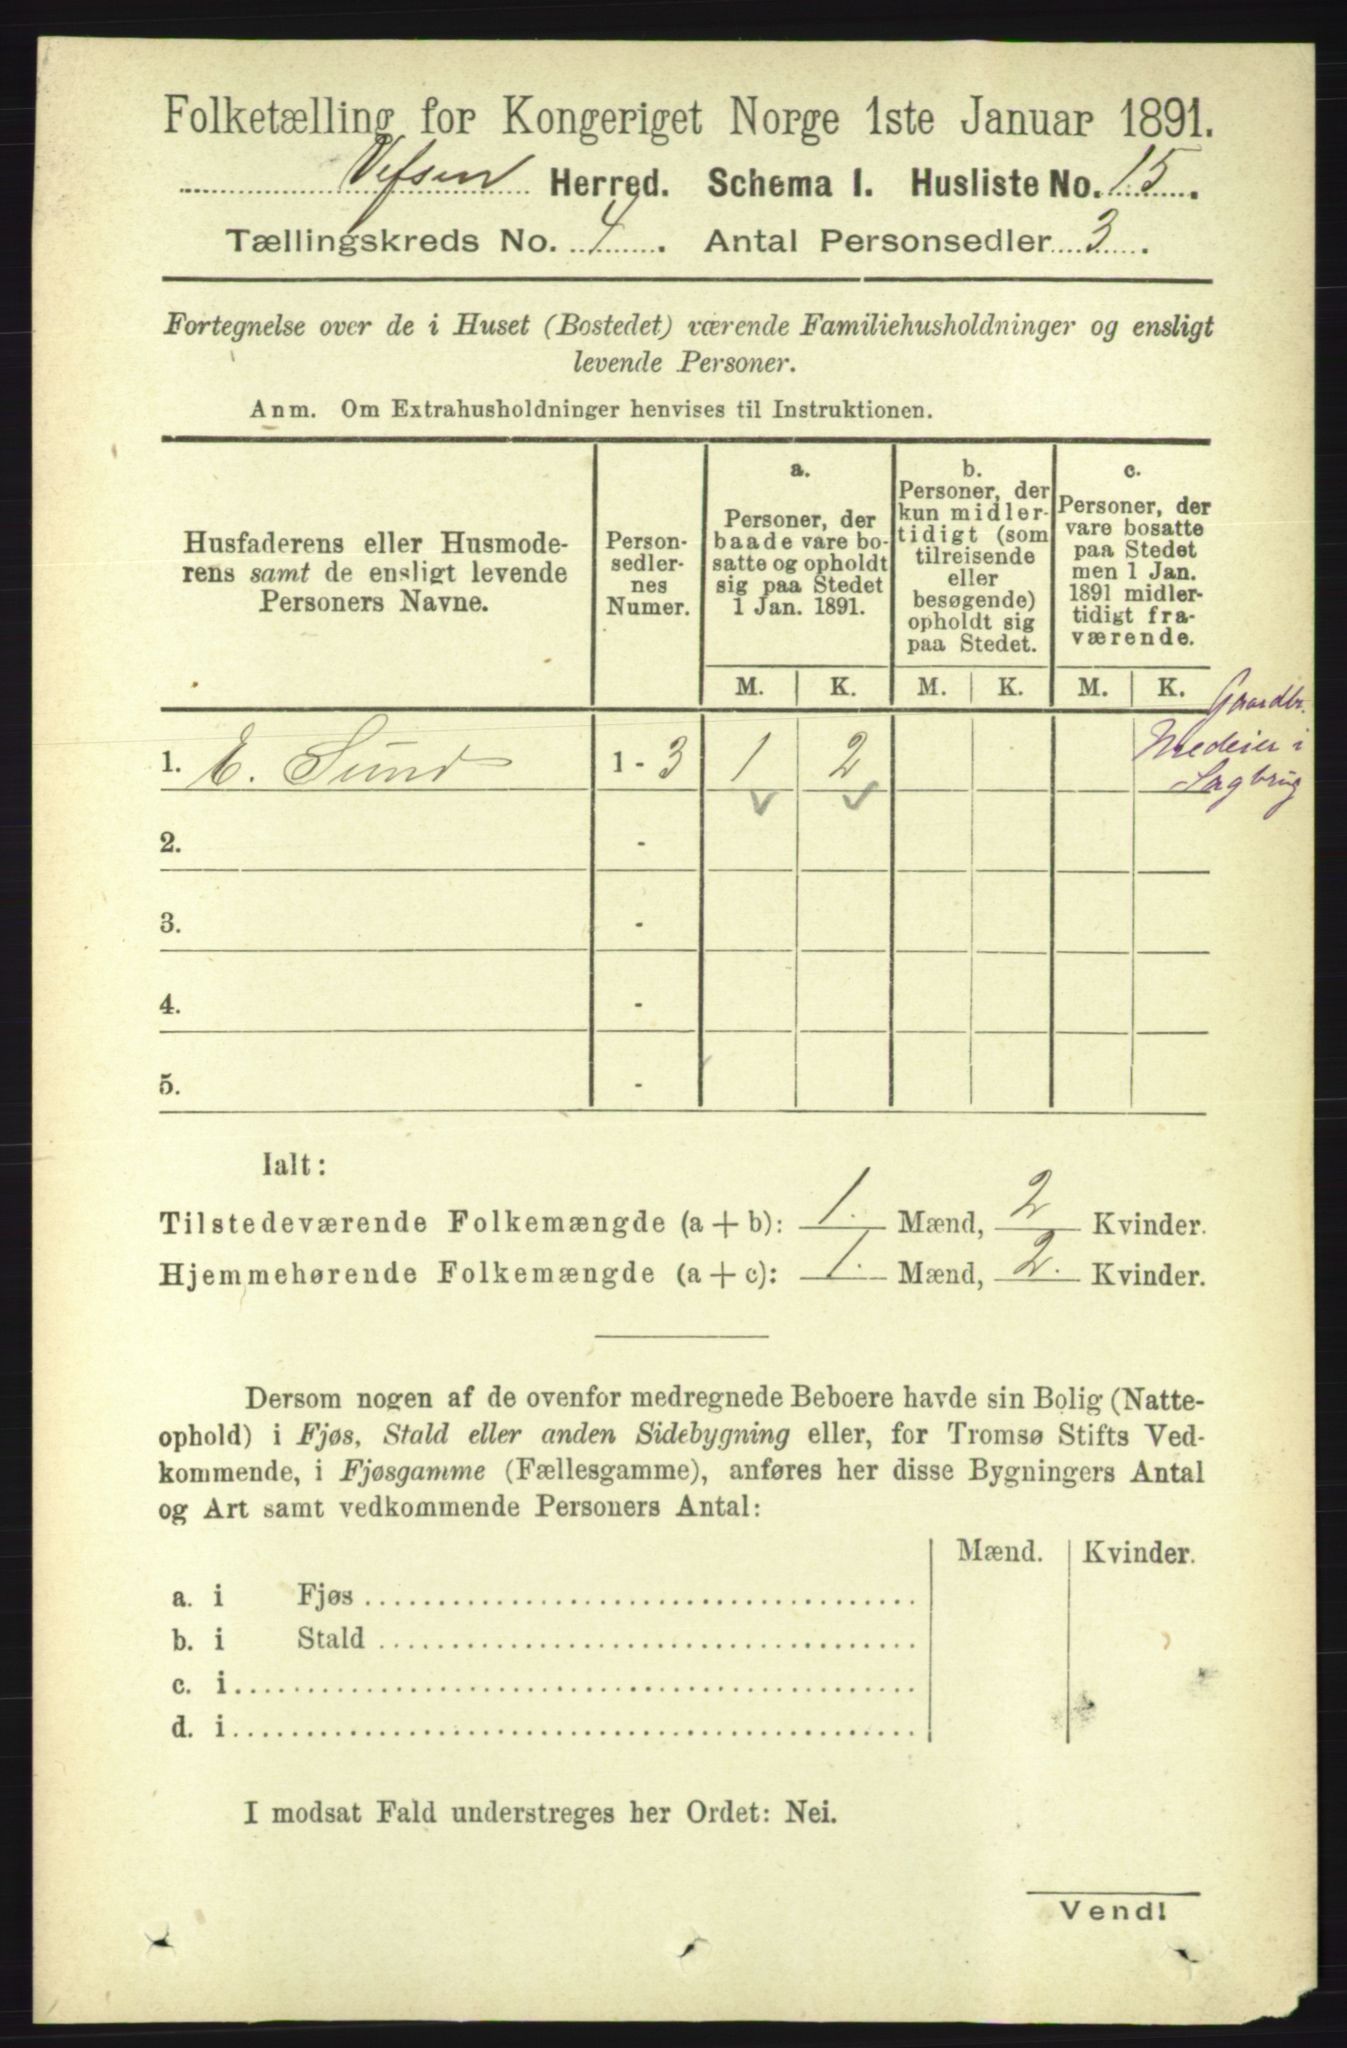 Folketælling for Kongeriget Norge 1ste Januar 1891.
Vefsen Herred. Schema I. Husliste No. 15.
Tællingskreds No. 4. Antal Personsedler 3.
Fortegnelse over de i Huset (Bostedet) værende Familiehusholdninger og ensligt
levende Personer.
Anm. Om Extrahusholdninger henvises til Instruktionen.
Husfaderens eller Husmode-
rens samt de ensligt levende
Personers Navne.
Person-
sedler-
nes
Numer.
a.
Personer, der
baade vare bo-
satte og opholdt
sig paa Stedet
1 Jan. 1891.
b.
Personer, der
kun midler-
tidigt (som
tilreisende
eller
besøgende)
opholdt sig
paa Stedet.
c.
Personer, der
vare bosatte
paa Stedet
men 1 Jan.
1891 midler-
tidigt fra-
værende.
M. K. M. K. M. K.
Gaardbr.
Medeier i
Sagbrug
1. E. Sund 1 - 3 1 2
2. -
3. -
4. -
5. -
Ialt:
Tilstedeværende Folkemængde (a + b): 1. Mænd, 2 Kvinder.
Hjemmehørende Folkemængde (a + c): 1. Mænd, 2. Kvinder.
Dersom nogen af de ovenfor medregnede Beboere havde sin Bolig (Natte-
ophold) i Fjøs, Stald eller anden Sidebygning eller, for Tromsø Stifts Ved-
kommende, i Fjøsgamme (Fællesgamme), anføres her disse Bygningers Antal
og Art samt vedkommende Personers Antal:
Mænd. Kvinder.
a. i Fjøs
b. i Stald
c. i
d. i
I modsat Fald understreges her Ordet: Nei.
Vend!